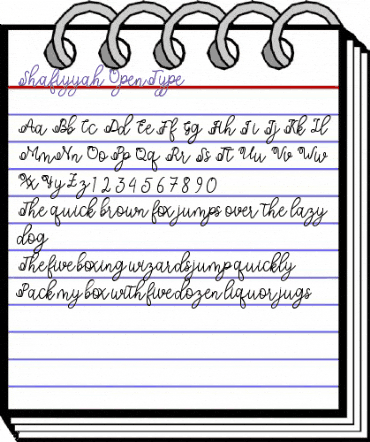 Shafiyyah OpenType
Aa Bb Cc Dd Ee Ff Gg Hh Ii Jj Kk Ll
Mm Nn Oo Pp Qq Rr Ss Tt Uu Vv Ww
Xx Yy Zz 1 2 3 4 5 6 7 8 9 0
The quick brown fox jumps over the lazy
dog
The five boxing wizards jump quickly
Pack my box with five dozen liquor jugs